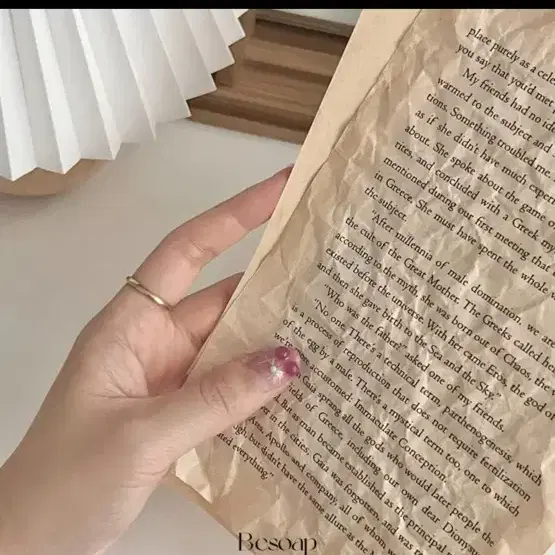 place purely as a cele
you say that you'd me
My friends had no id
warmed to the subject and
tions. Something troubled me
as if she didn't have much expe
about. She spoke about the game
ries, and concluded with a Greek
mentioned during our first meeting that
in Greece. She must have spent the whole
the subject.
"After millennia of male domination, we are
the cult of the Great Mother. The Greeks called h
according to the myth, she was born out of Chaos, the
existed before the universe. With her came Eros, the god o
and then she gave birth to the Sea and the Sky."
"Who was the father?" asked one of my friends.
"No one. There's a technical term, parthenogenesis, which
is a process of reproduction that does not require fertilization
of the egg by a male. There's a mystical term too, one to which
we're accustomed: Immaculate Conception.
Gaia sprang all the gods who would later people the
fields of Greece, including our own dear Dionys
But as man became established as the principal
in the cities, Gaia was forgotten, and was re
Apollo and company, all of whom
but didn't have the same allure as the
ated everything."
Besoap